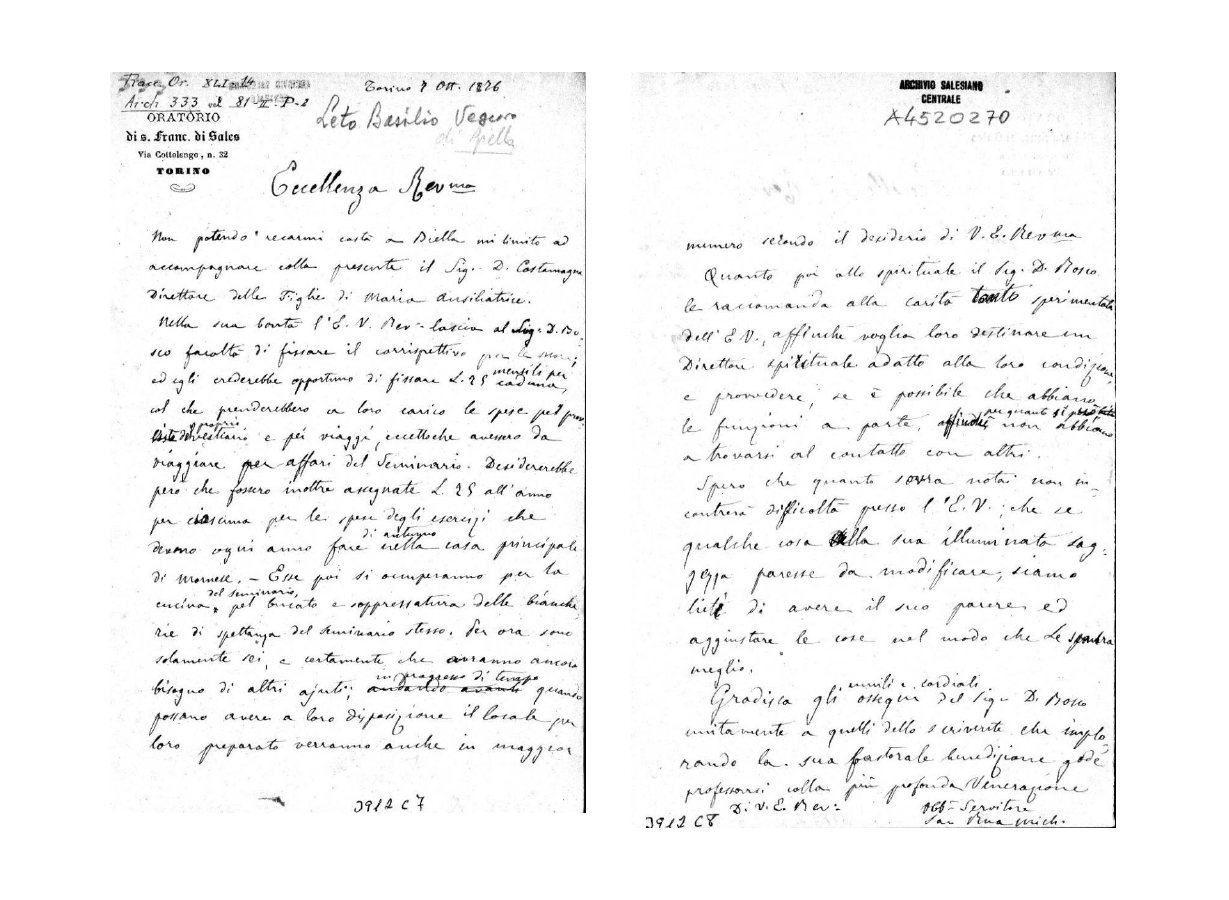 Trasc. Or. XLI - 14
Arch 333 vol 81 II - P-2
ORATORIO
di s. Franc. di Sales
Via Cottolengo, n. 32
TORINO
Torino 7 Ott. 1876
Leto Basilio Vescovo
di Biella
Eccellenza Revma
Non potendo recarmi costà a Biella mi limito ad
accompagnare colla presente il Sig. D. Costamagna
Direttore delle Figlie di Maria Ausiliatrice.
Nella sua bontà l'E. V. Rev- lascia al Sig. D. Bo-
sco facoltà di fissare il corrispettivo per le suore,
ed egli crederebbe opportuno di fissare L. 25 mensili per caduna,
col che prenderebbero a loro carico le spese pel
proprio vestiario e pei viaggi eccettoché avessero da
viaggiare per affari del Seminario. Desidererebbe
però che fossero inoltre assegnate L. 25 all'anno
per ciascuna per le spese degli esercizi che
devono ogni anno fare di autunno nella casa principale
di Mornese. - Esse poi si occuperanno per la
cucina del seminario, pel bucato e soppressatura delle bianche
rie di spettanza del Seminario stesso. Per ora sono
solamente sei, e certamente che avranno ancora
bisogno di altri ajuti; in progresso di tempo andando avanti quando
possano avere a loro disposizione il locale per
loro preparato verranno anche in maggior
3912 C 7
ARCHIVIO SALESIANO
CENTRALE
A4520270
numero secondo il desiderio di V. E. Revma
Quanto poi allo spirituale il Sig. D. Bosco
le raccomanda alla carità tanto sperimentata
dell'E V., affinché voglia loro destinare un
Direttore spirituale adatto alla loro condizione,
e provvedere, se è possibile che abbiano
le funzioni a parte, affinché per quanto si può non abbiano
a trovarsi al contatto con altri.
Spero che quanto sovra notai non in-
contrerà difficoltà presso l'E. V.; che se
qualche cosa alla sua illuminata sag-
gezza paresse da modificare, siamo
lieti di avere il suo parere ed
aggiustare le cose nel modo che Le sembra
meglio.
Gradisca gli umili e cordiali ossequi del Sig. D. Bosco
unitamente a quelli dello scrivente che implo-
rando la sua pastorale benedizione gode
professarsi colla più profonda Venerazione
Di V. E. Rev-
Obb- Servitore
Sac Rua Mich.
3912 C8